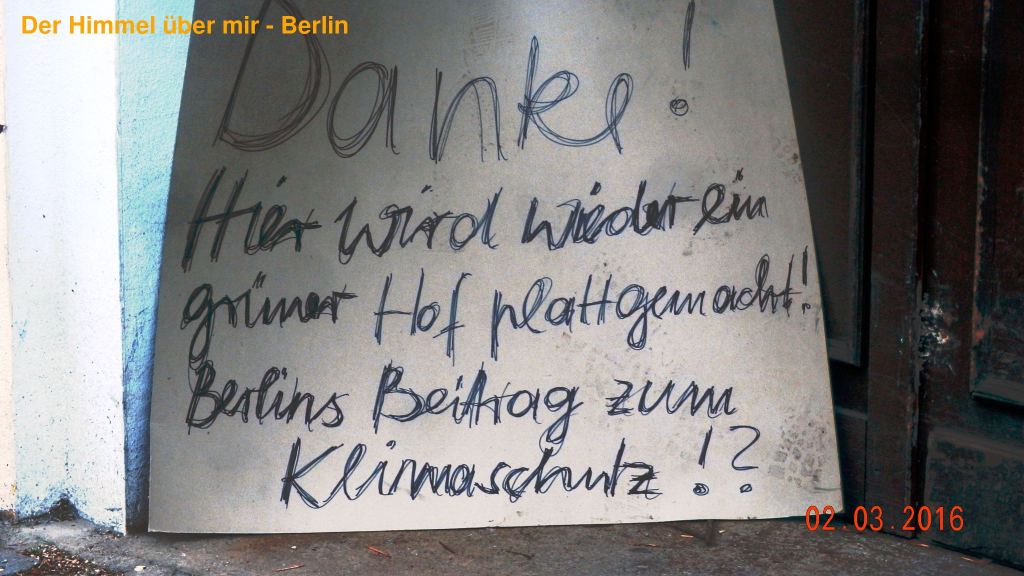 Der Himmel über mir - Berlin
Danke!
Hier wird wieder ein
grüner Hof plattgemacht!
Berlins Beitrag zum
Klimaschutz!?
02.03.2016